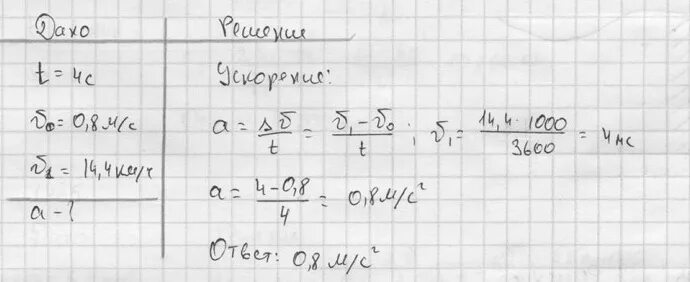 Дано
t = 4с
v₀ = 0,8 м/с
v₁ = 14,4 км/ч
a - ?
Решение
Ускорение:
a = Δv/t = (v₁ - v₀)/t ; v₁ = (14,4 · 1000)/3600 = 4 мс
a = (4 - 0,8)/4 = 0,8 м/с²
Ответ: 0,8 м/с²